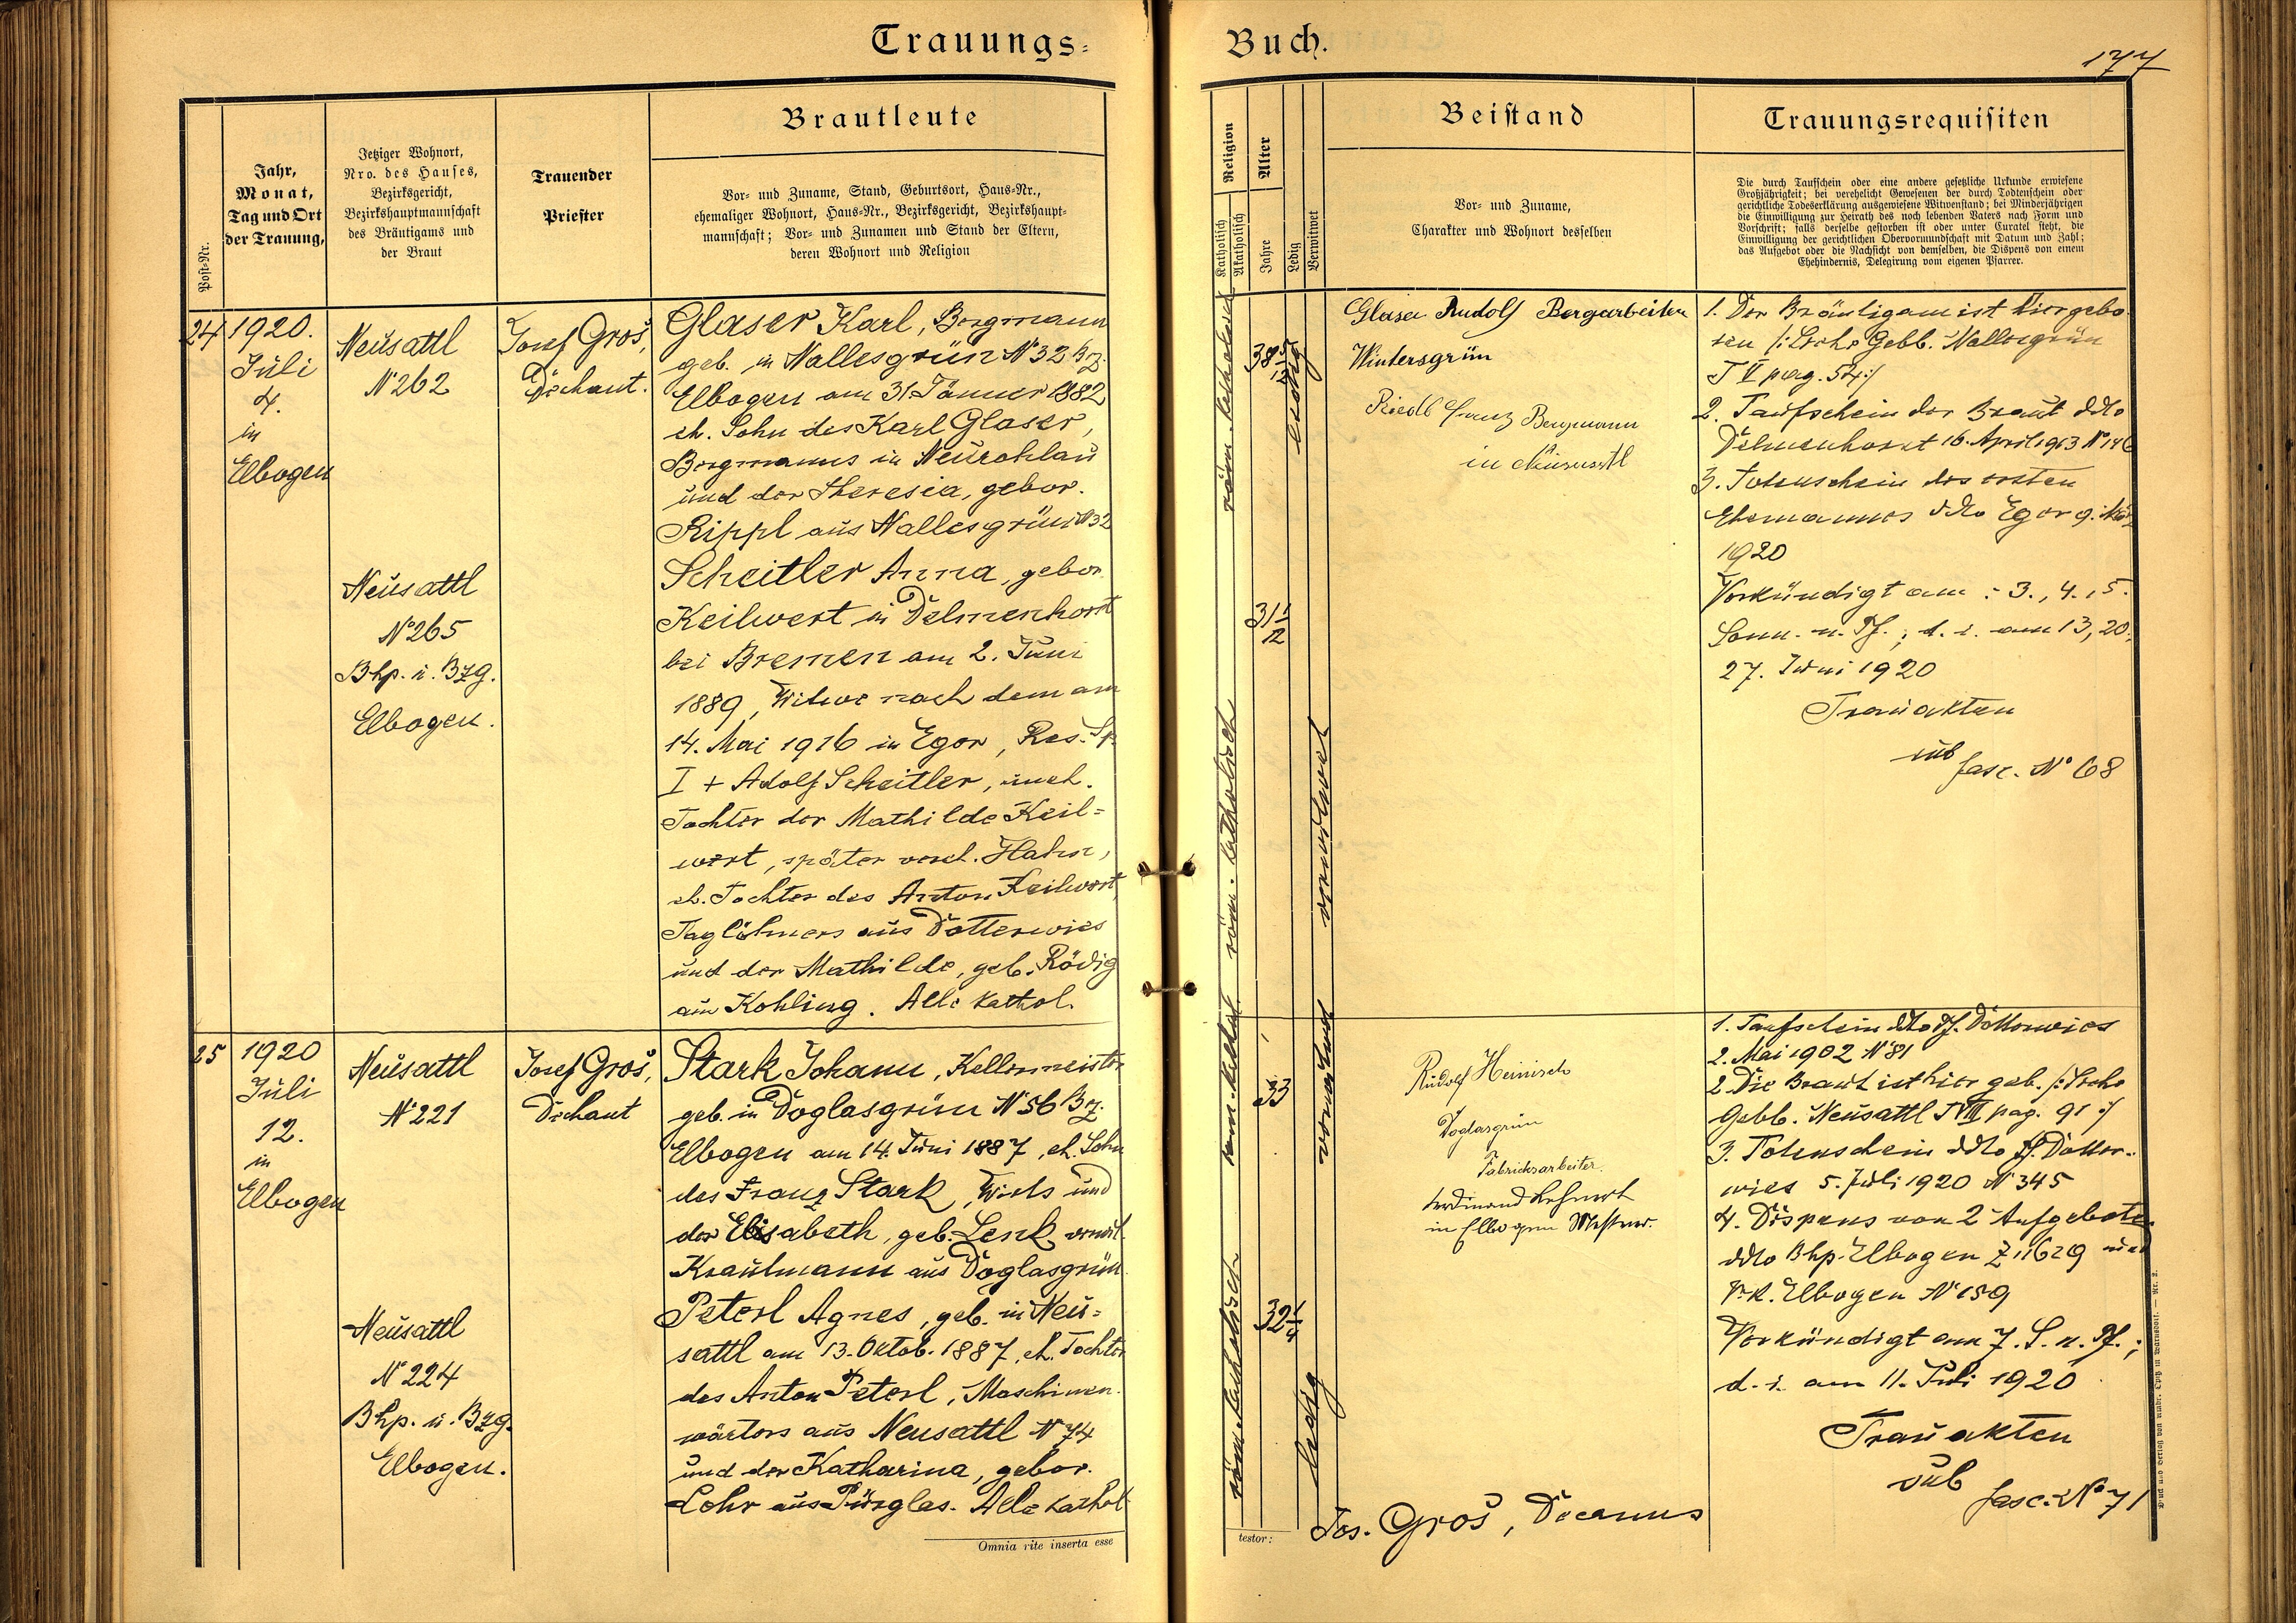 Trauungs=
Buch.
177
Post-Nr.
Jahr,
Monat,
Tag und Ort
der Trauung,
Jetziger Wohnort,
Nro. des Hauses,
Bezirksgericht,
Bezirkshauptmannschaft
des Bräutigams und
der Braut
Trauender
Priester
Brautleute
Vor- und Zuname, Stand, Geburtsort, Haus-Nr.,
ehemaliger Wohnort, Haus-Nr., Bezirksgericht, Bezirkshaupt-
mannschaft; Vor- und Zunamen und Stand der Eltern,
deren Wohnort und Religion
Religion
Katholisch
Akatholisch
Alter
Jahre
Ledig
Verwitwet
Beistand
Vor- und Zuname,
Charakter und Wohnort desselben
Trauungsrequisiten
Die durch Taufschein oder eine andere gesetzliche Urkunde erwiesene
Großjährigkeit; bei verehelicht Gewesenen der durch Todtenschein oder
gerichtliche Todeserklärung ausgewiesene Witwenstand; bei Minderjährigen
die Einwilligung zur Heirath des noch lebenden Vaters nach Form und
Vorschrift; falls derselbe gestorben ist oder unter Curatel steht, die
Einwilligung der gerichtlichen Obervormundschaft mit Datum und Zahl;
das Aufgebot oder die Nachsicht von demselben, die Dispens von einem
Ehehindernis, Delegirung vom eigenen Pfarrer.
24
1920.
Juli
4.
in
Elbogen
Neusattl
N° 262
Josef Groš,
Dechant.
Glaser Karl, Bergmann
geb. in Nallesgrün N° 32 Bez.
Elbogen am 31. Jänner 1882
eh. Sohn des Karl Glaser,
Bergmanns in Neurohlau
und der Theresia, gebor.
Rippl aus Nallesgrün N° 32
Neusattl
N° 265
Bhp. u. Bzg.
Elbogen.
Scheitler Anna, gebor.
Keilwert in Delmenhorst
bei Bremen am 2. Juni
1889, Witwe nach dem am
14. Mai 1916 in Eger, Res. Sp.
I + Adolf Scheitler, uneh.
Tochter der Mathilde Keil=
wert, später vereh. Hahn,
eh. Tochter des Anton Keilwert,
Taglöhners aus Dotterwies
und der Mathilde, geb. Rödig
aus Kohling. Alle kathol.
röm. katholisch
38 5/12
ledig
röm. katholisch
31 1/12
verwitwet
Glaser Rudolf Bergarbeiter
Wintersgrün
Riedl Franz Bergmann
in Neusattl
1. Der Bräutigam ist hier gebo-
ren /: Siehe Gebb. Nallesgrün
T II pag. 54 :/
2. Taufschein der Braut ddto
Delmenhorst 16. April 1913 N° 146
3. Totenschein des ersten
Ehemannes ddto Eger 9. März
1920
Verkündigt am: 3., 4., 5.
Sonn. n. Pf.; d. i. am 13, 20.,
27. Juni 1920
Trauakten
sub
fasc. N° 68
25
1920
Juli
12.
in
Elbogen
Neusattl
N° 221
Josef Groš,
Dechant
Stark Johann, Kellermeister
geb. in Doglasgrün N° 56 Bez.
Elbogen am 14. Juni 1887, eh. Sohn
des Franz Stark, Wirts und
der Elisabeth, geb. Lenk, verwit.
Krautmann aus Doglasgrün.
Neusattl
N° 224
Bhp. u. Bzg.
Elbogen.
Peterl Agnes, geb. in Neu=
sattl am 13. Oktob. 1887, eh. Tochter
des Anton Peterl, Maschinen-
wärters aus Neusattl N° 74
und der Katharina, gebor.
Lohr aus Pürglas. Alle kathol.
röm. kathol.
33
verwitwet
röm. katholisch
32 1/4
ledig
Rudolf Heinisch
Doglasgrün
Fabricksarbeiter.
Ferdinand Lehnert
in Elbogen Messner.
1. Taufschein ddto Pf. Dotterwies
2. Mai 1902 N° 81
2. Die Braut ist hier geb. /: Siehe
Gebb. Neusattl T VIII pag. 91 :/
3. Totenschein ddto Pf. Dotter-
wies 5. Juli 1920 N° 345
4. Dispens von 2 Aufgeboten
ddto Bhp. Elbogen Z 11629 und
Vik. Elbogen N° 159
Verkündigt am 7. S. n. Pf.;
d. i. am 11. Juli 1920
Trauakten
sub
fasc. N° 71
Omnia rite inserta esse
testor:
Jos. Groš, Decanus